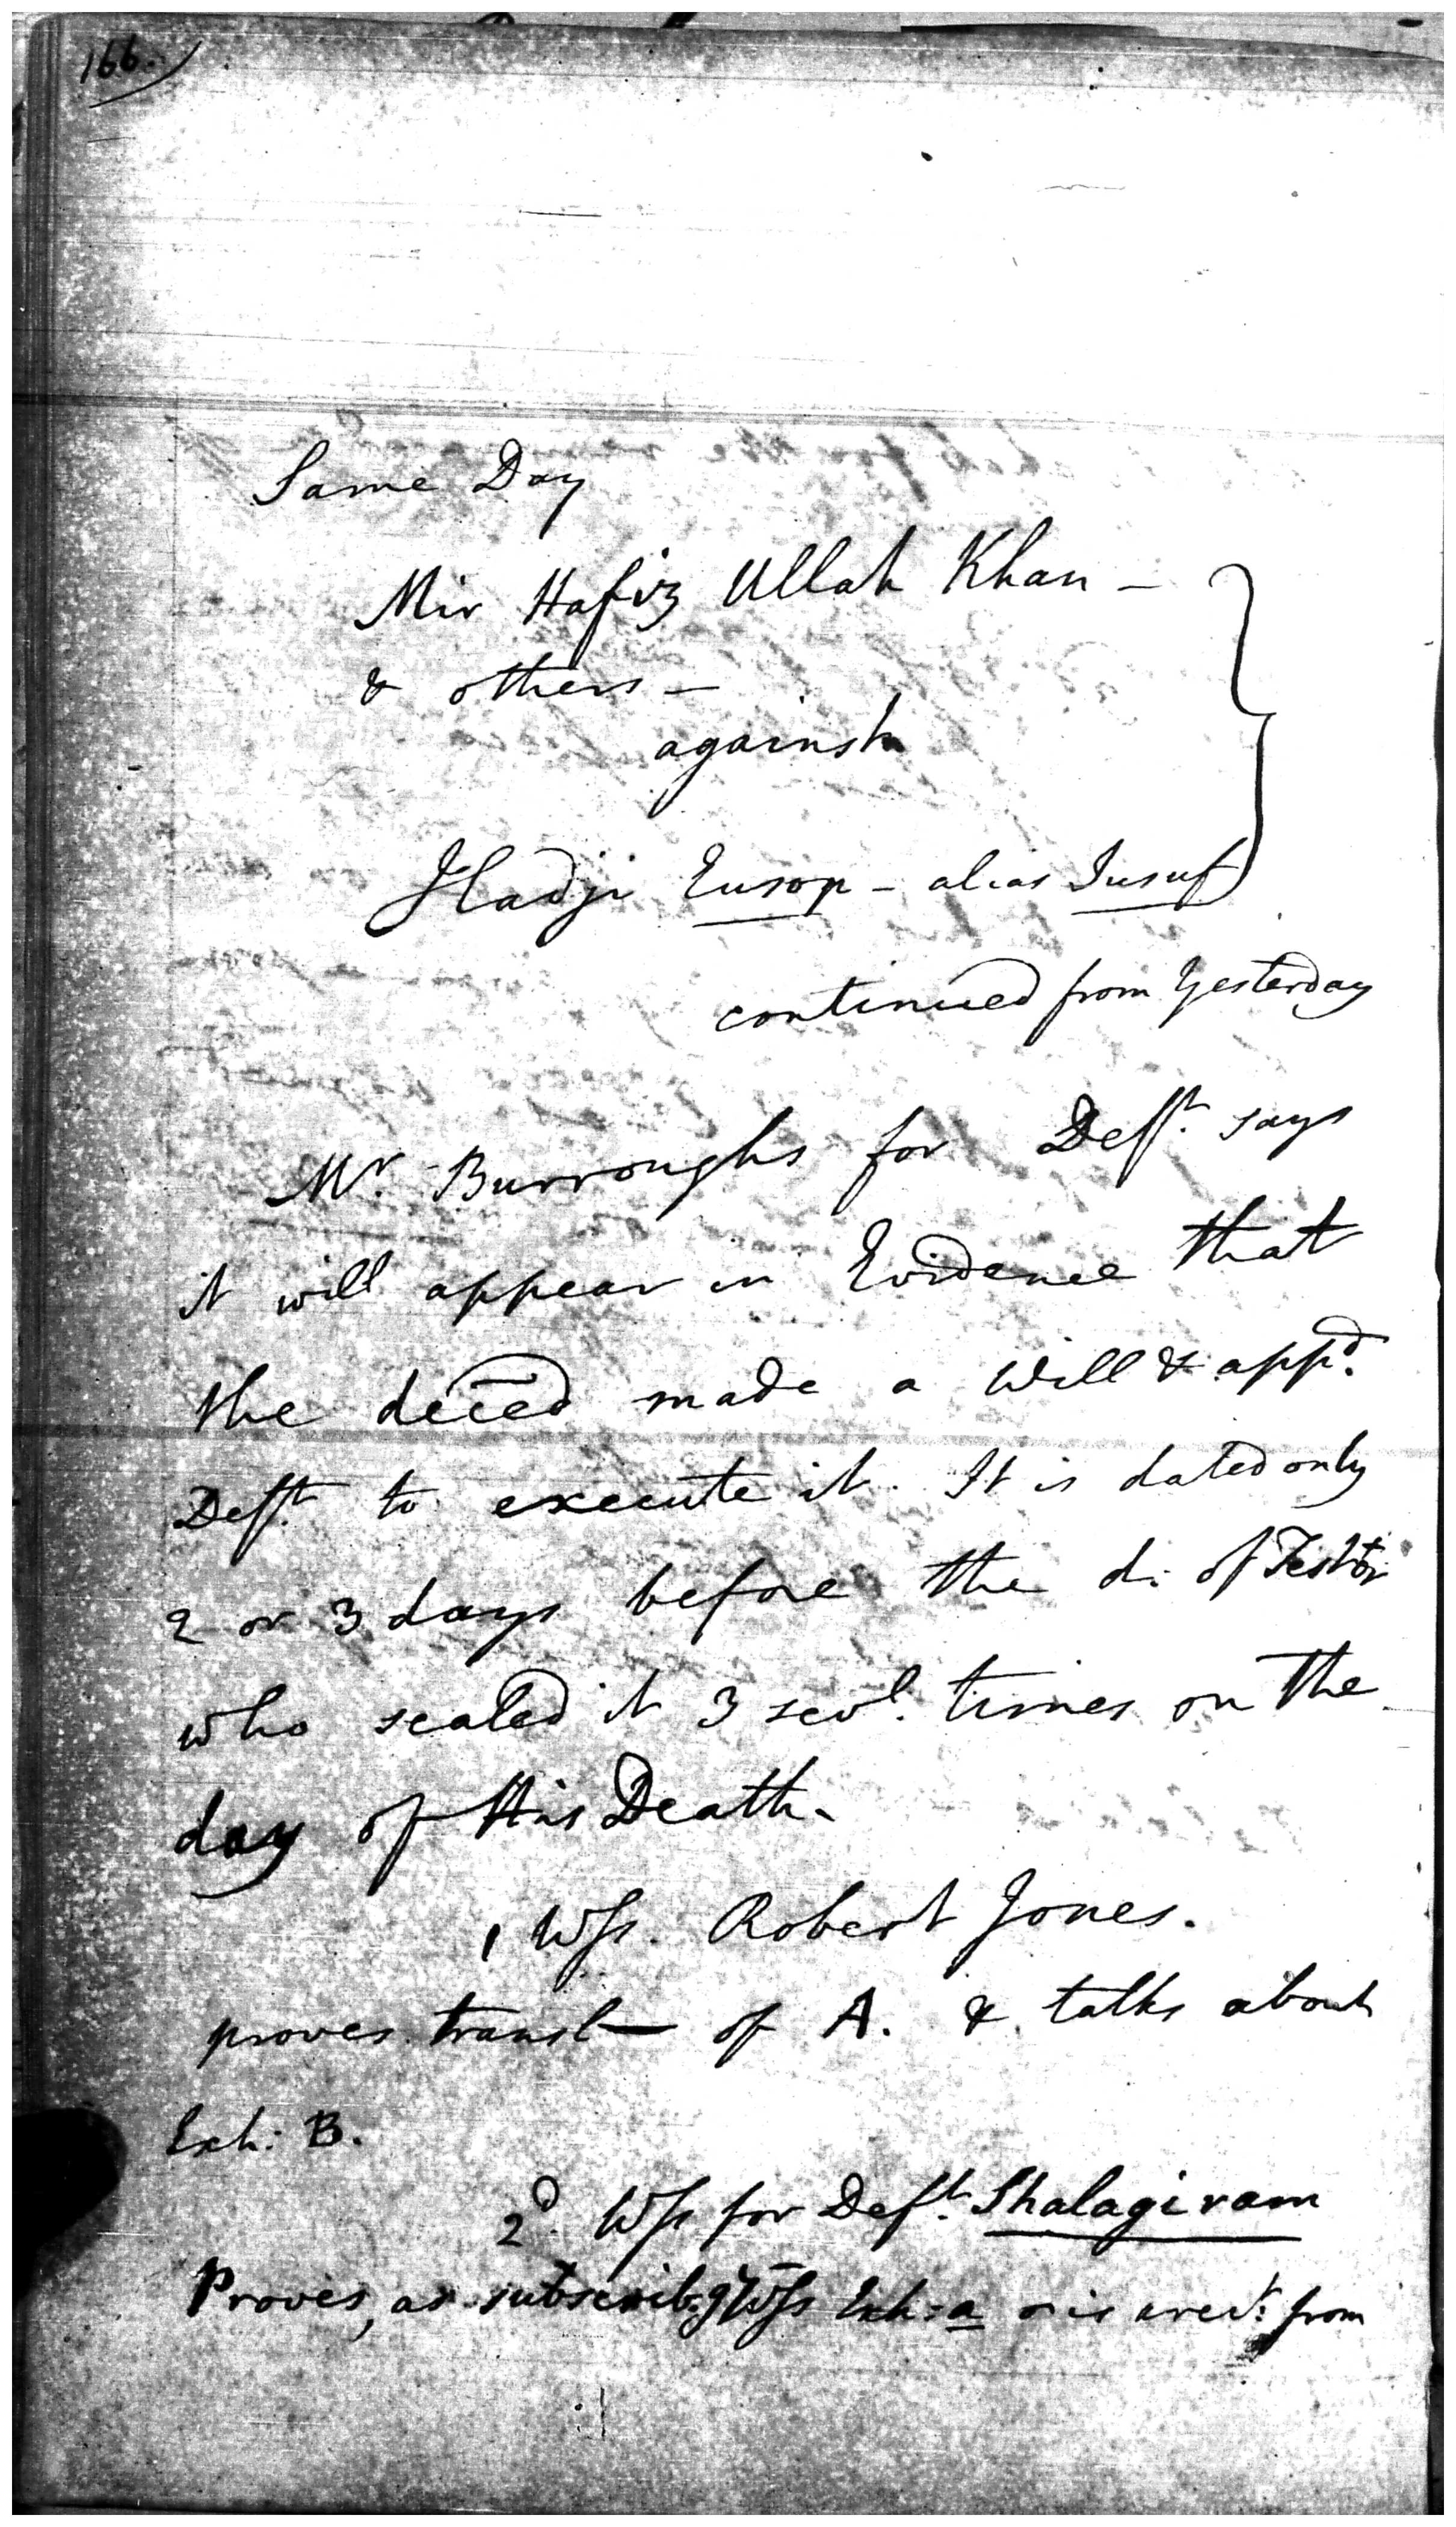 166.
Same Day
Mir Hafiz Ullah Khan -
& others -
against
Hadji Eusop - alias Iusuf
continued from Yesterday
Mr. Burroughs for Deft. says
it will appear in Evidence that
the deced made a Will & appd.
Deft. to execute it. It is dated only
2 or 3 days before the d: of Testor:
who sealed it 3 sevl. times on the
day of His Death.
1 Wss. Robert Jones.
proves transl— of A. & talks about
Exh: B.
2d. Wss for Deft. Shalagiram
Proves, as subscribg Wss Exh: a from